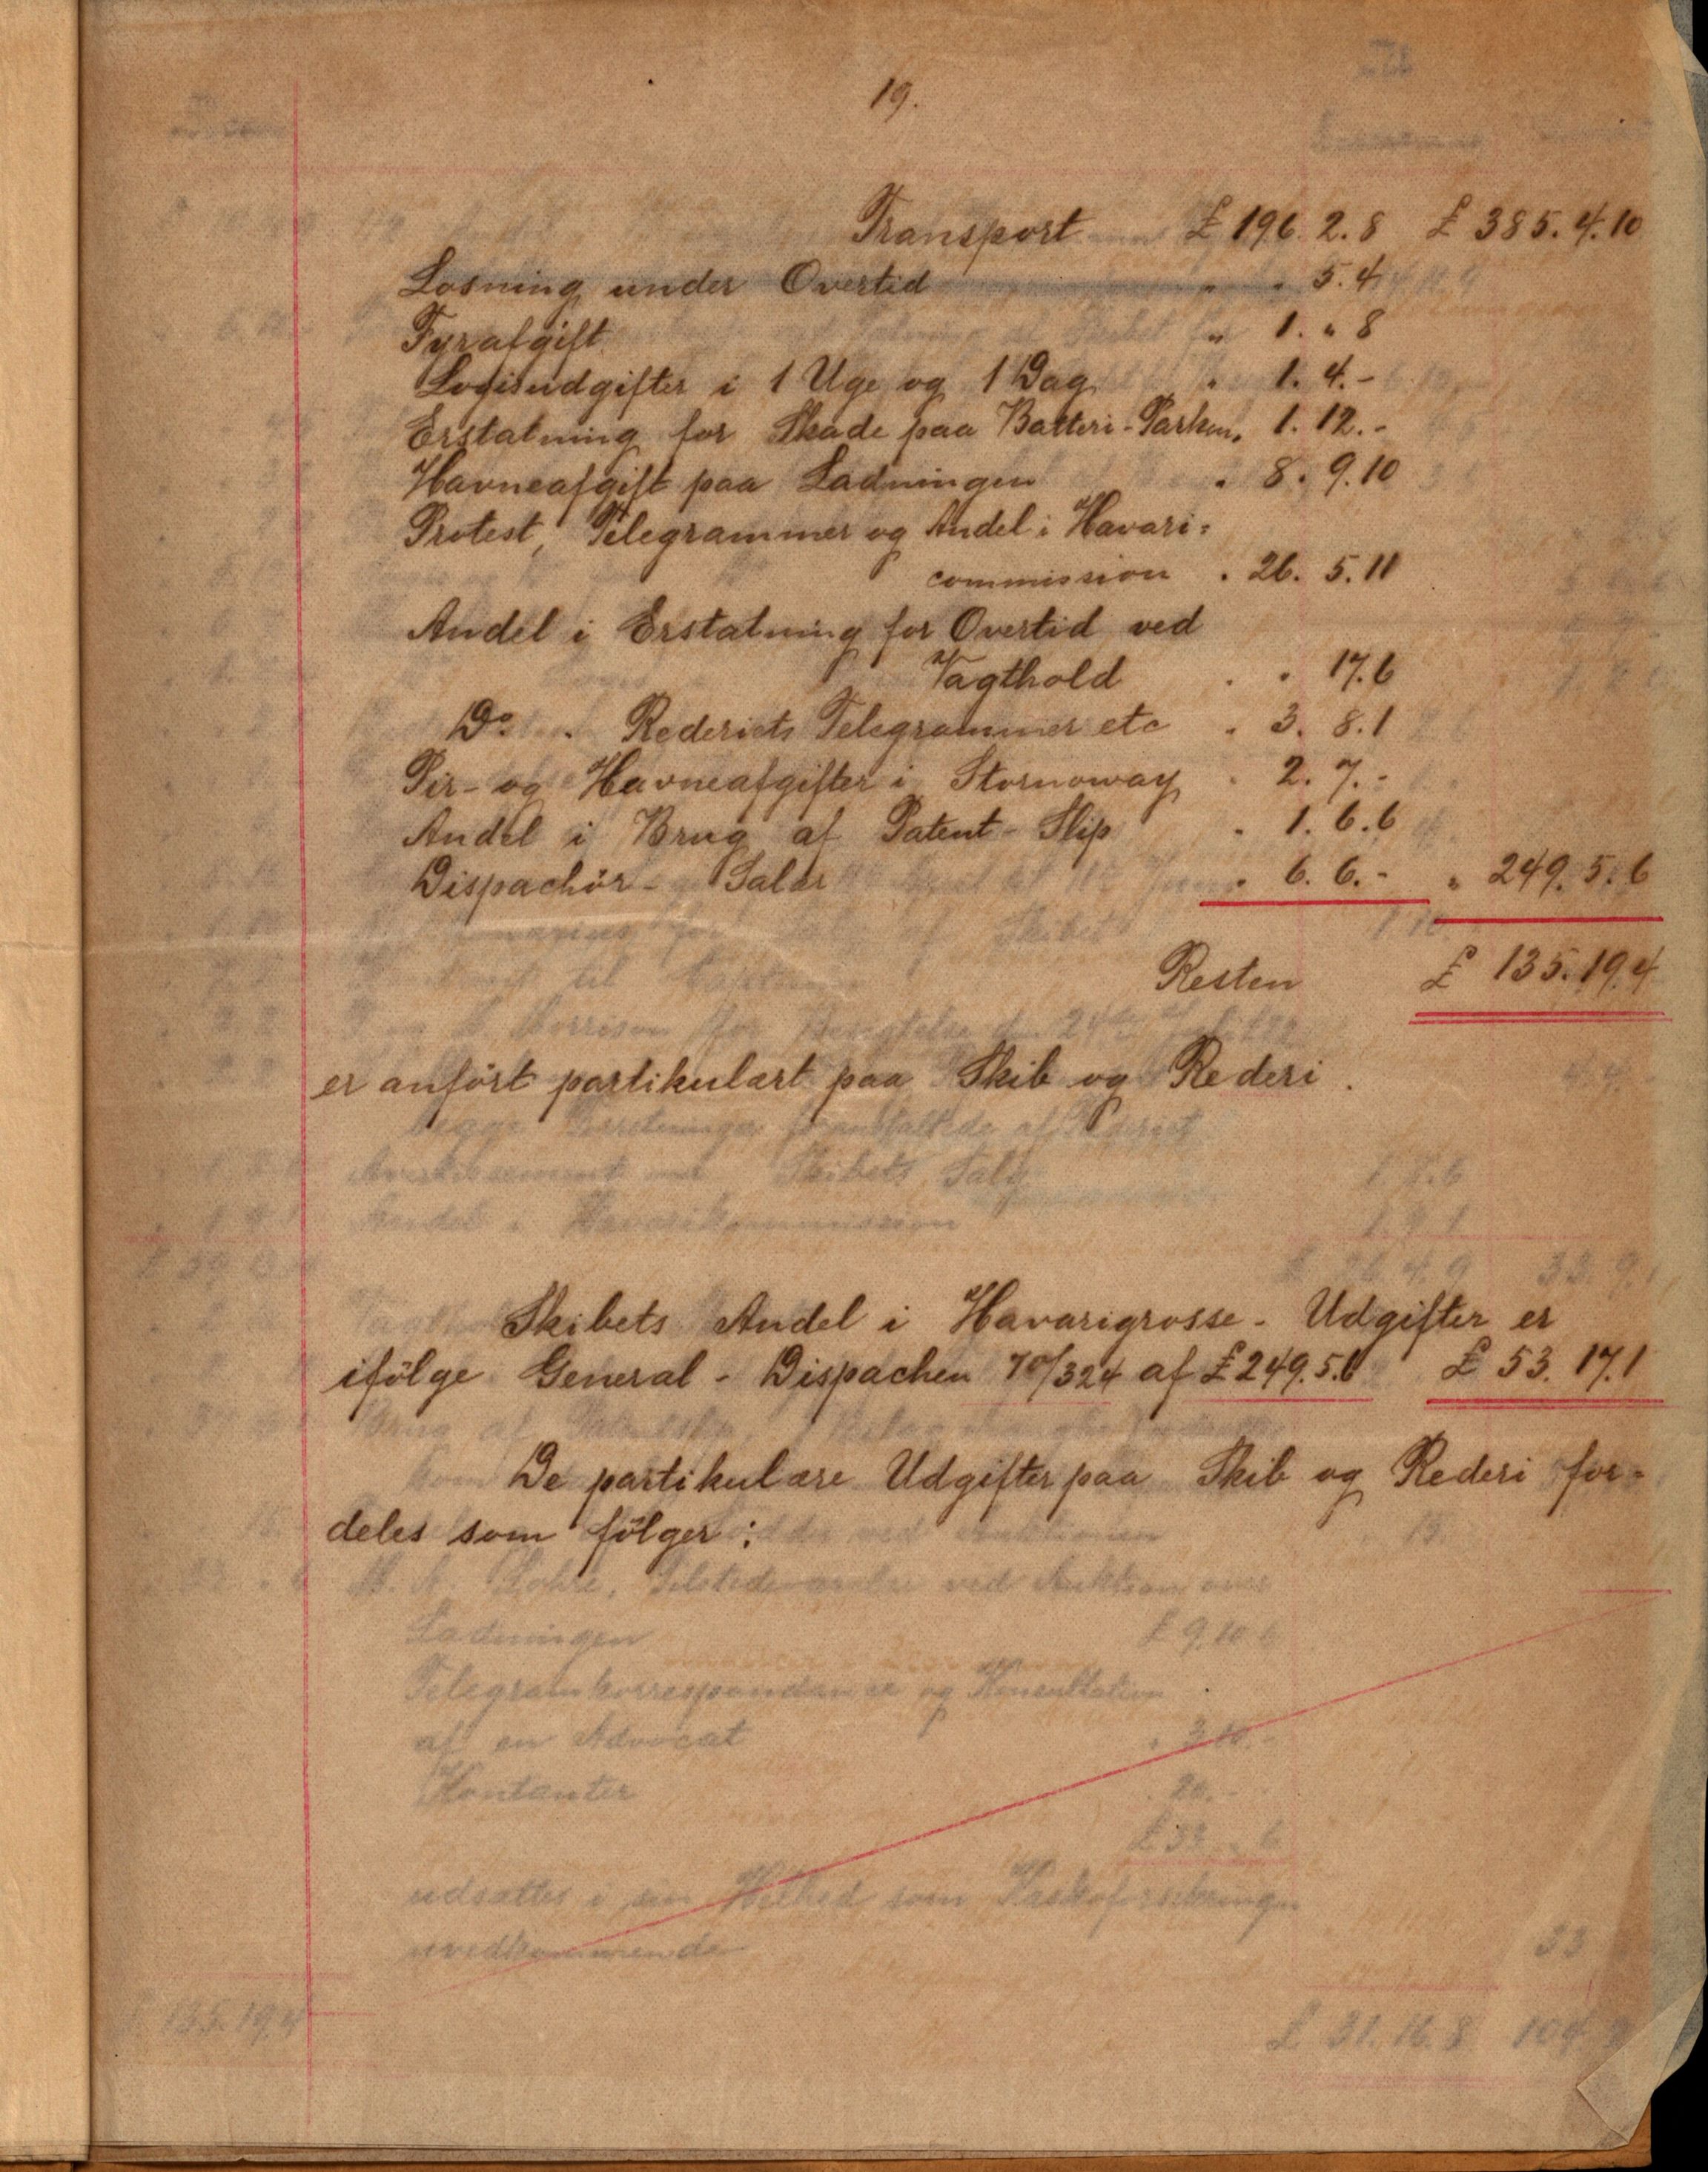 19.
Transport £ 196. 2. 8 £ 385. 4. 10
Losning under Overtid " " 5. 4
Fyrafgift " 1. " 8
Logisudgifter i 1 Uge og 1 Dag " 1. 4. -
Erstatning for Skade paa Batteri-Parken " 1. 12. -
Havneafgift paa Ladningen " 8. 9. 10
Protest, Telegrammer og Andel i Havari-
commission " 26. 5. 11
Andel i Erstatning for Overtid ved
Vagthold " " 17. 6
Do " Rederiets Telegrammer etc " 3. 8. 1
Pir- og Havneafgifter i Stornoway " 2. 7. -
Andel i Brug af Patent-Slip " 1. 6. 6
Dispachör-Salær " 6. 6. - " 249. 5. 6
Resten £ 135. 19. 4
er anfört partikulært paa Skib og Rederi.
Skibets Andel i Havarigrosse-Udgifter er
ifölge General-Dispachen 70/324 af £ 249. 5. 6 £ 53. 17. 1
De partikulære Udgifter paa Skib og Rederi for-
deles som fölger: